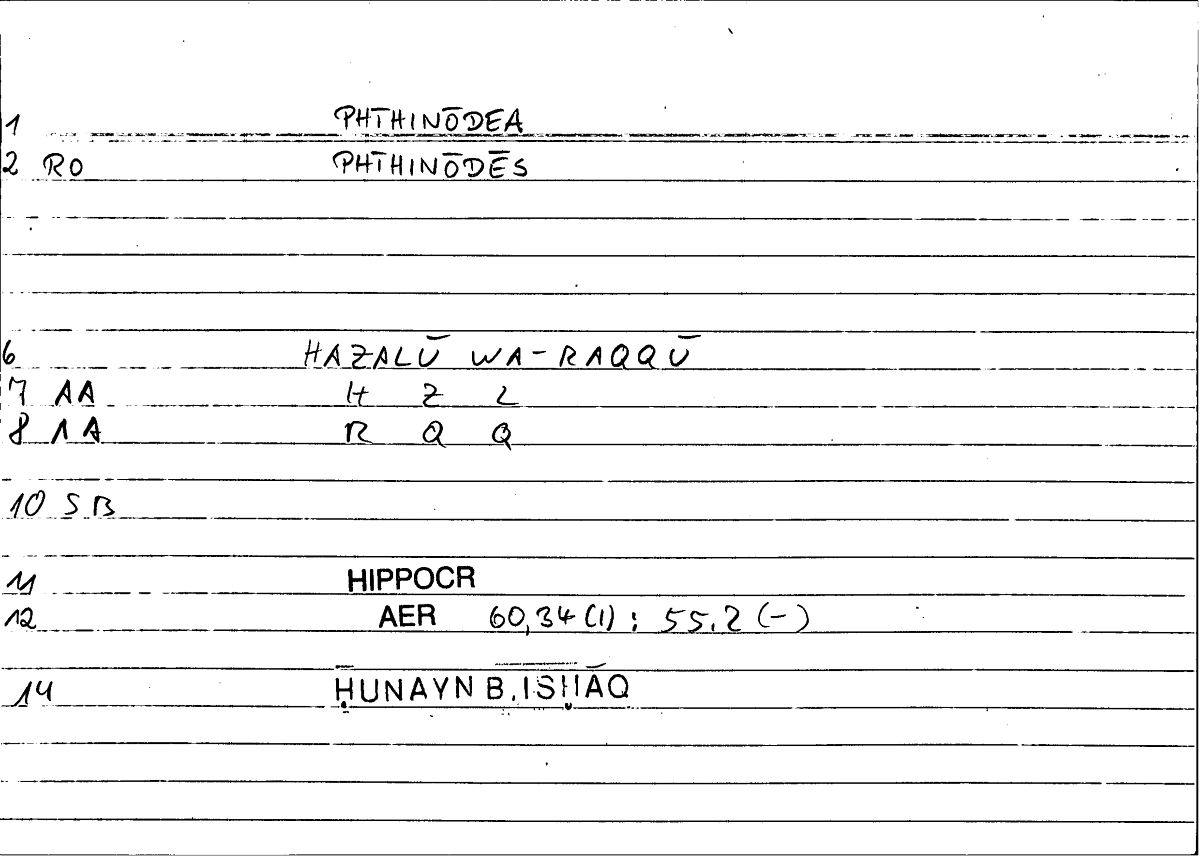 1 PHTHINŌDEA
2 RO PHTHINŌDĒS
6 HAZALŪ WA-RAQQŪ
7 AA H Z L
8 AA R Q Q
10 SB
11 HIPPOCR
12 AER 60,34 (1) : 55.2 (-)
14 ḤUNAYN B. ISḤĀQ